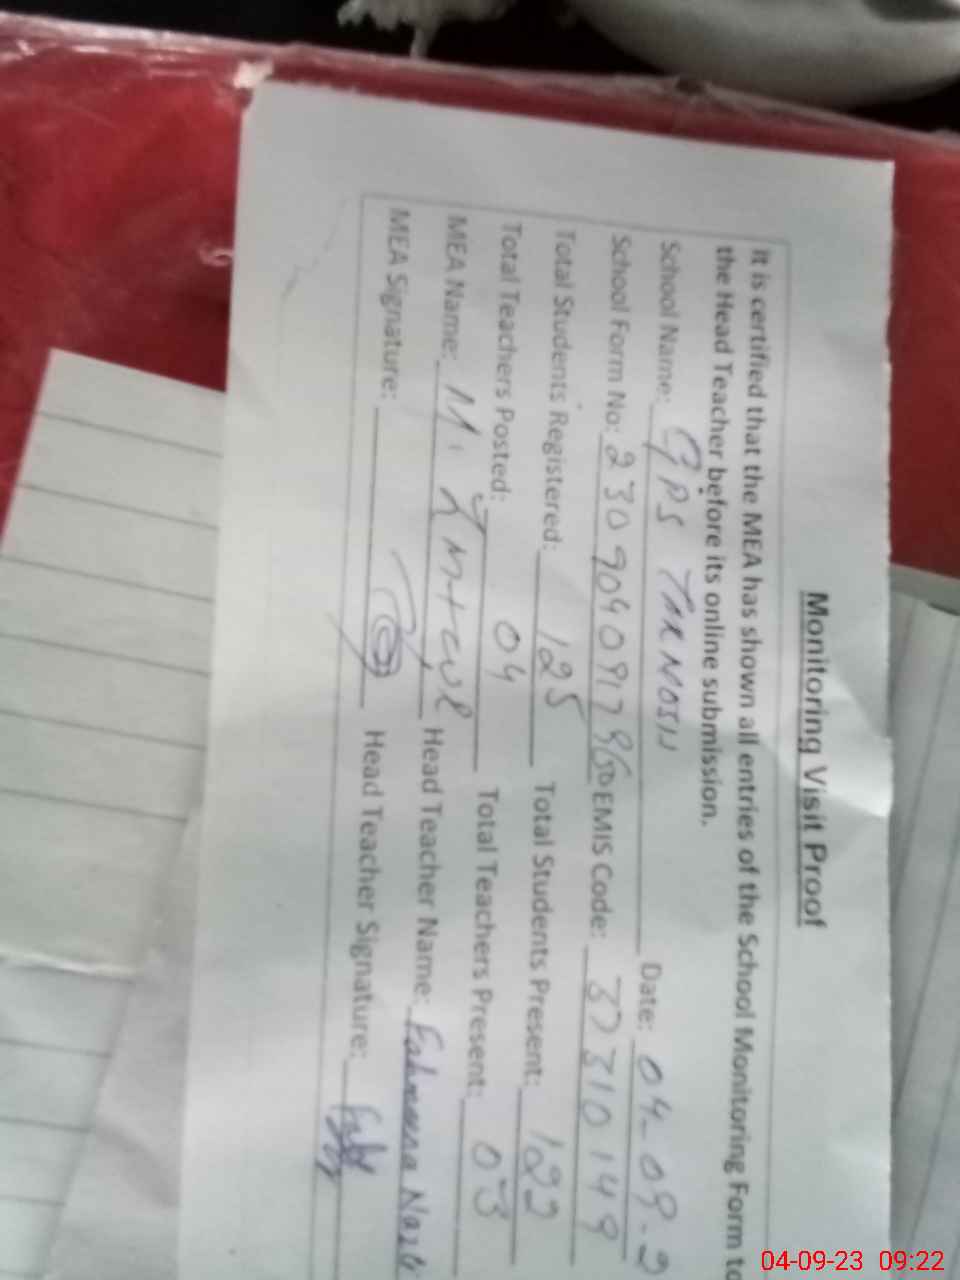 Monitoring Visit Proof
It is certified that the MEA has shown all entries of the School Monitoring Form to
the Head Teacher before its online submission.
School Name: GPS Date: 04-09-2
School Form No: EMIS Code: 37310149
Total Students Registered: 125 Total Students Present: 122
Total Teachers Posted: 04 Total Teachers Present: 03
MEA Name: M. Head Teacher Name:
MEA Signature: Head Teacher Signature:
04-09-23 09:22